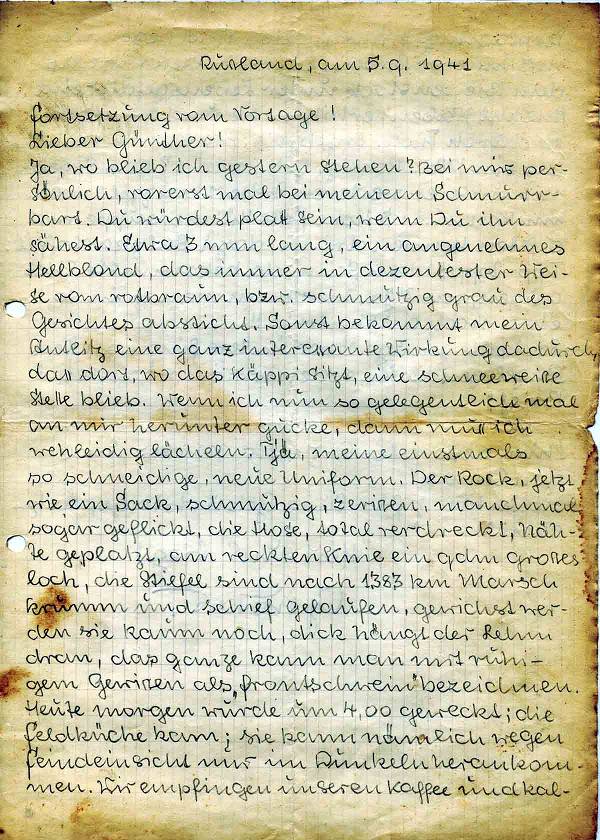 Rußland, am 5.9. 1941
Fortsetzung vom Vortage!
Lieber Günther!
Ja, wo blieb ich gestern stehen? Bei mir per-
sönlich, vorerst mal bei meinem Schnurr-
bart. Du würdest platt sein, wenn Du ihn
sähest. Etwa 3 mm lang, ein angenehmes
Hellblond, das immer in dezentester Wei-
se vom rotbraun, bzw. schmutzig grau des
Gesichtes absticht. Sonst bekommt mein
Antlitz eine ganz interessante Wirkung dadurch,
daß dort, wo das Käppi sitzt, eine schneeweiße
Stelle blieb. Wenn ich nun so gelegentlich mal
an mir herunter gucke, dann muß ich
wehleidig lächeln. Tjä, meine einstmals
so schneidige, neue Uniform. Der Rock, jetzt
wie ein Sack, schmutzig, zerißen, manchmal
sogar geflickt, die Hose, total verdreckt, Näh-
te geplatzt, am reckten Knie ein qdm großes
loch, die Stiefel sind nach 1383 km Marsch
krumm und schief gelaufen, gewichst wer-
den sie kaum noch, dick hängt der Lehm
dran, das ganze kann man mit ruhi-
gem Gewißen als „Frontschwein" bezeichnen.
Heute morgen wurde um 4,00 geweckt; die
Feldküche kam; sie kann nämlich wegen
Feindeinsicht nur im Dunkeln herankom-
men. Wir empfingen unseren Kaffee und kal-